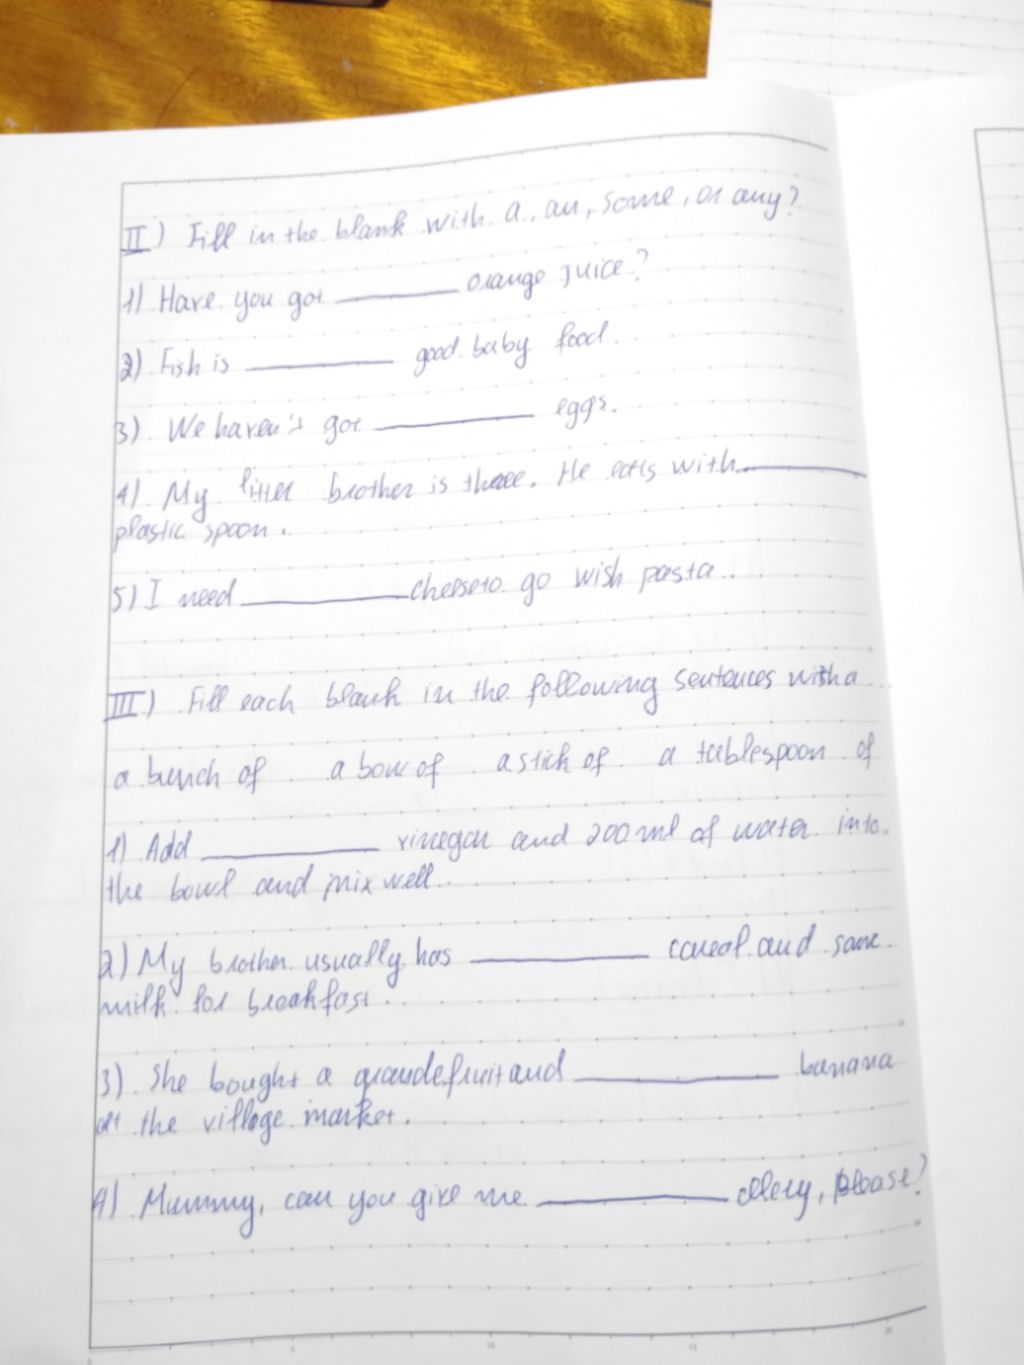 II) Fill in the blank with a, an, some, or any?
1) Have you got ______ orange juice?
2) Fish is ______ good baby food.
3) We haven't got ______ eggs.
4) My litter brother is three. He eats with ______
plastic spoon.
5) I need ______ cheese to go wish pasta.
III) Fill each blank in the following sentences with a
a bunch of a bow of a stick of a tablespoon of
1) Add ______ vinegar and 200 ml of water into
the bowl and mix well.
2) My brother usually has ______ cereal and some
milk for breakfast.
3) She bought a grandefruit and ______ banana
at the village market.
4) Mummy, can you give me ______ celery, please?